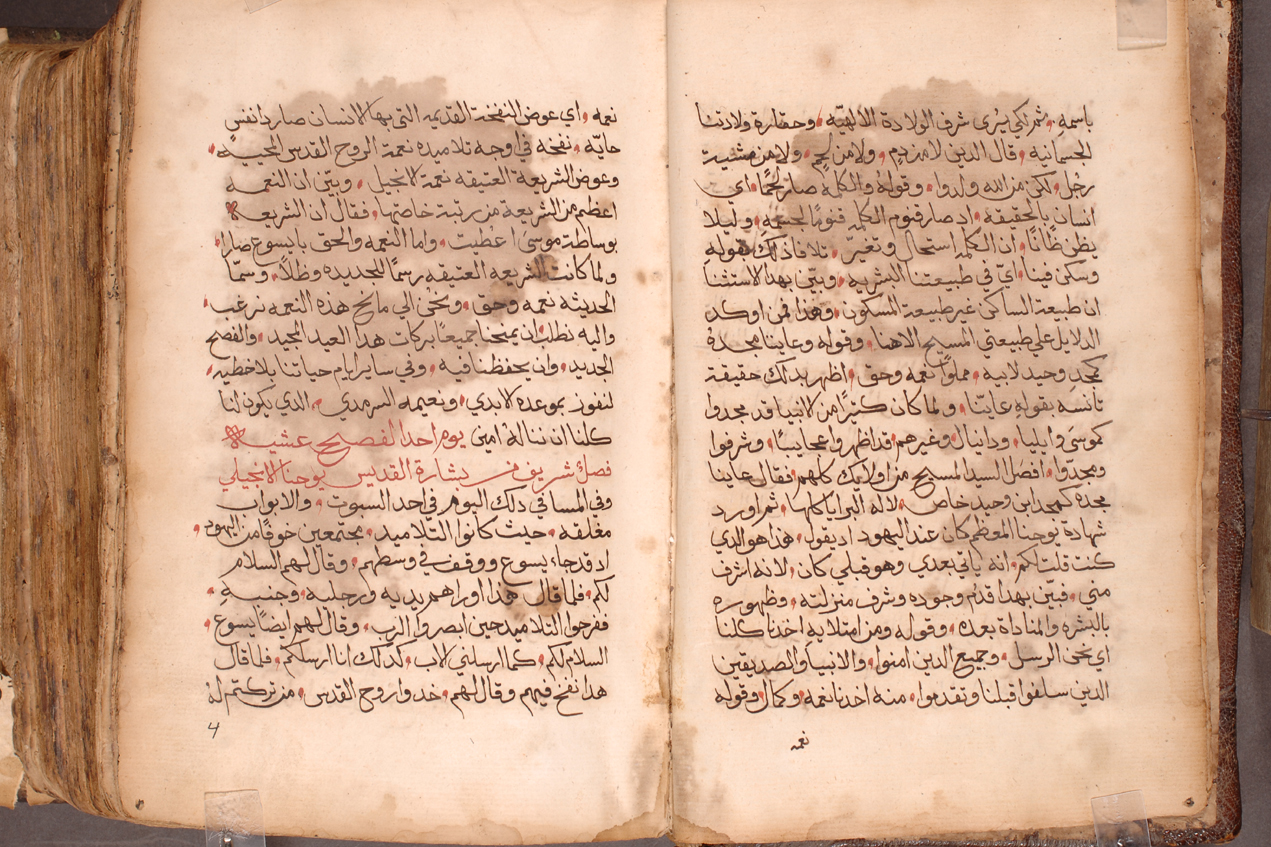 باسمه، ثم لكي يرى شرف الولادة الالهية، وحقارة ولادتنا
الجسمانية، قال الذين لا من دم، ولا من لحم، ولا من مشية
رجل، لكن من الله ولدوا، وقوله والكلمة صار لحمًا، اي
انسان بالحقيقة، اذ صار قنوم الكلمه قنومًا لجسمه، وليلا
يظن ظانًا، ان الكلمه استحال وتغير، تلافا ذلك بقوله
وسكن فينا، اي في طبيعتنا البشريه، وبين بهذا الاستثنا
ان طبيعة الساكن غير طبيعة المسكون، وهذا فمن اوكد
الدلايل علي طبيعتي المسيح الاهنا، وقوله وعاينا مجدهُ
كمجدِ وحيد لابيه، مملوًا نعمه وحق، اظهر بذلك حقيقة
تانسه بقوله عاينا، ولما كان كثيرًا من الانبيا قد مجدوا
كموسى وايليا، ودانيال، وغيرهم، قد اظهروا عجايبًا، وشرفوا
ومجدوا، افضل السيد المسيح من اوليك كلهم، فقال عاينا
مجده كمجد ابن وحيد خاص، لاله البرايا كلها، ثم اورد
شهادة يوحنا المعظم كان عند اليهود اذ يقول، هذا هو الذي
كنت قلت لكم، انه ياتي بعدي وهو قبلي كان، لانه اشرف
مني، فبين بهذا قدم وجوده وشرف منزلته، وظهوره
بالبشره والمناداة بعده، وقوله ومن امتلايه اخذنا كلنا
اي نحن الرسل، وجميع الذين امنوا، والانبيا والصديقين
الذين سلفوا قبلنا وتقدموا، منه اخذنا نعمه، وكمال، وقوله
نعمه
نعمه، اي عوض النفخة القديمه التي بها الانسان صار ذا نفس
حايّه، نفخه في اوجه تلاميذه نعمة الروح القدس المحييه،
وعوض الشريعة العتيقه نعمة الانجيل، وبيّن ان النعمه
اعظم من الشريعة من رتبة خاصتها، فقال ان الشريعه
بوساطة موسى اعطيت، واما النعمه والحق بايسوع صارا،
ولما كانت الشريعه العتيقه رسمًا للجديده وظلاً، وسما
الحديثه نعمه وحق، ونحن الي مانح هذه النعمه نرغب،
واليه نطلب، ان يمنحنا جميعًا بركات هذا العيد المجيد، والفصح
الجديد، وان يحفظنا فيه، وفي ساير ايام حياتنا بلا خطيه،
لنفوز بموعده الابدي، ونعيمه السرمدي، الذي يكون لنا
كلنا ان ننالهُ امين يوم احد الفصح عشيه
فصل شريف من بشارة القديس يوحنا الانجيلي
وفي المسا في ذلك اليوم في احد السبوت، والابواب
مغلقه، حيث كانوا التلاميذ، مجتمعين خوفًا من اليهود،
اذ قد جاء يسوع ووقف في وسطهم، وقال لهم السلام
لكم، فلما قال هذا اوراهم يديه ورجليه، وجنبه،
ففرحوا التلاميذ حين ابصروا الرب، وقال لهم ايضًا يسوع،
السلام لكم، كما ارسلني الاب، كذلك انا ارسلكم، فلما قال
هذا نفخ فيهم وقال لهم، خذوا روح القدس، من تركتم لهُ
4